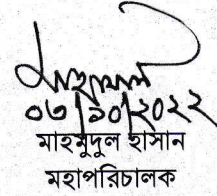 ০৬/১০/২০২২
মাহমুদুল হাসান
মহাপরিচালক